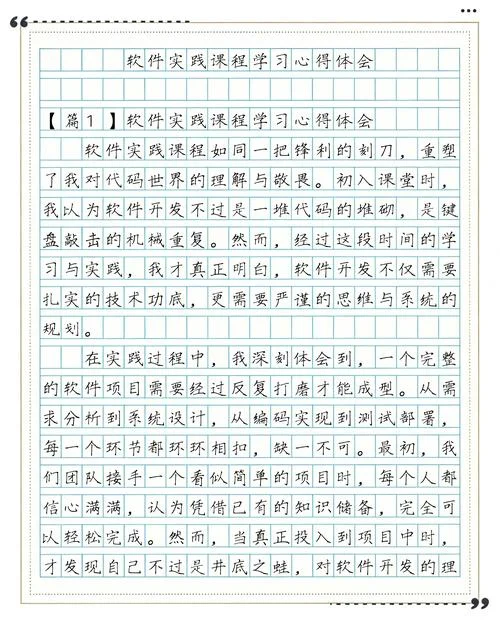 软件实践课程学习心得体会
【篇1】软件实践课程学习心得体会
软件实践课程如同一把锋利的刻刀，重塑
了我对代码世界的理解与敬畏。初入课堂时，
我以为软件开发不过是一堆代码的堆砌，是键
盘敲击的机械重复。然而，经过这段时间的学
习与实践，我才真正明白，软件开发不仅需要
扎实的技术功底，更需要严谨的思维与系统的
规划。
在实践过程中，我深刻体会到，一个完整
的软件项目需要经过反复打磨才能成型。从需
求分析到系统设计，从编码实现到测试部署，
每一个环节都环环相扣，缺一不可。最初，我
们团队接手一个看似简单的项目时，每个人都
信心满满，认为凭借已有的知识储备，完全可
以轻松完成。然而，当真正投入到项目中时，
才发现自己不过是井底之蛙，对软件开发的理